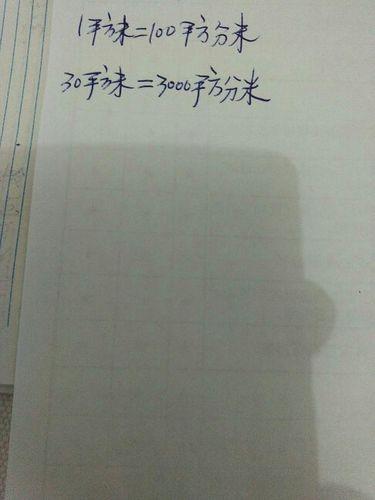 1平方米=100平方分米
30平方米=3000平方分米